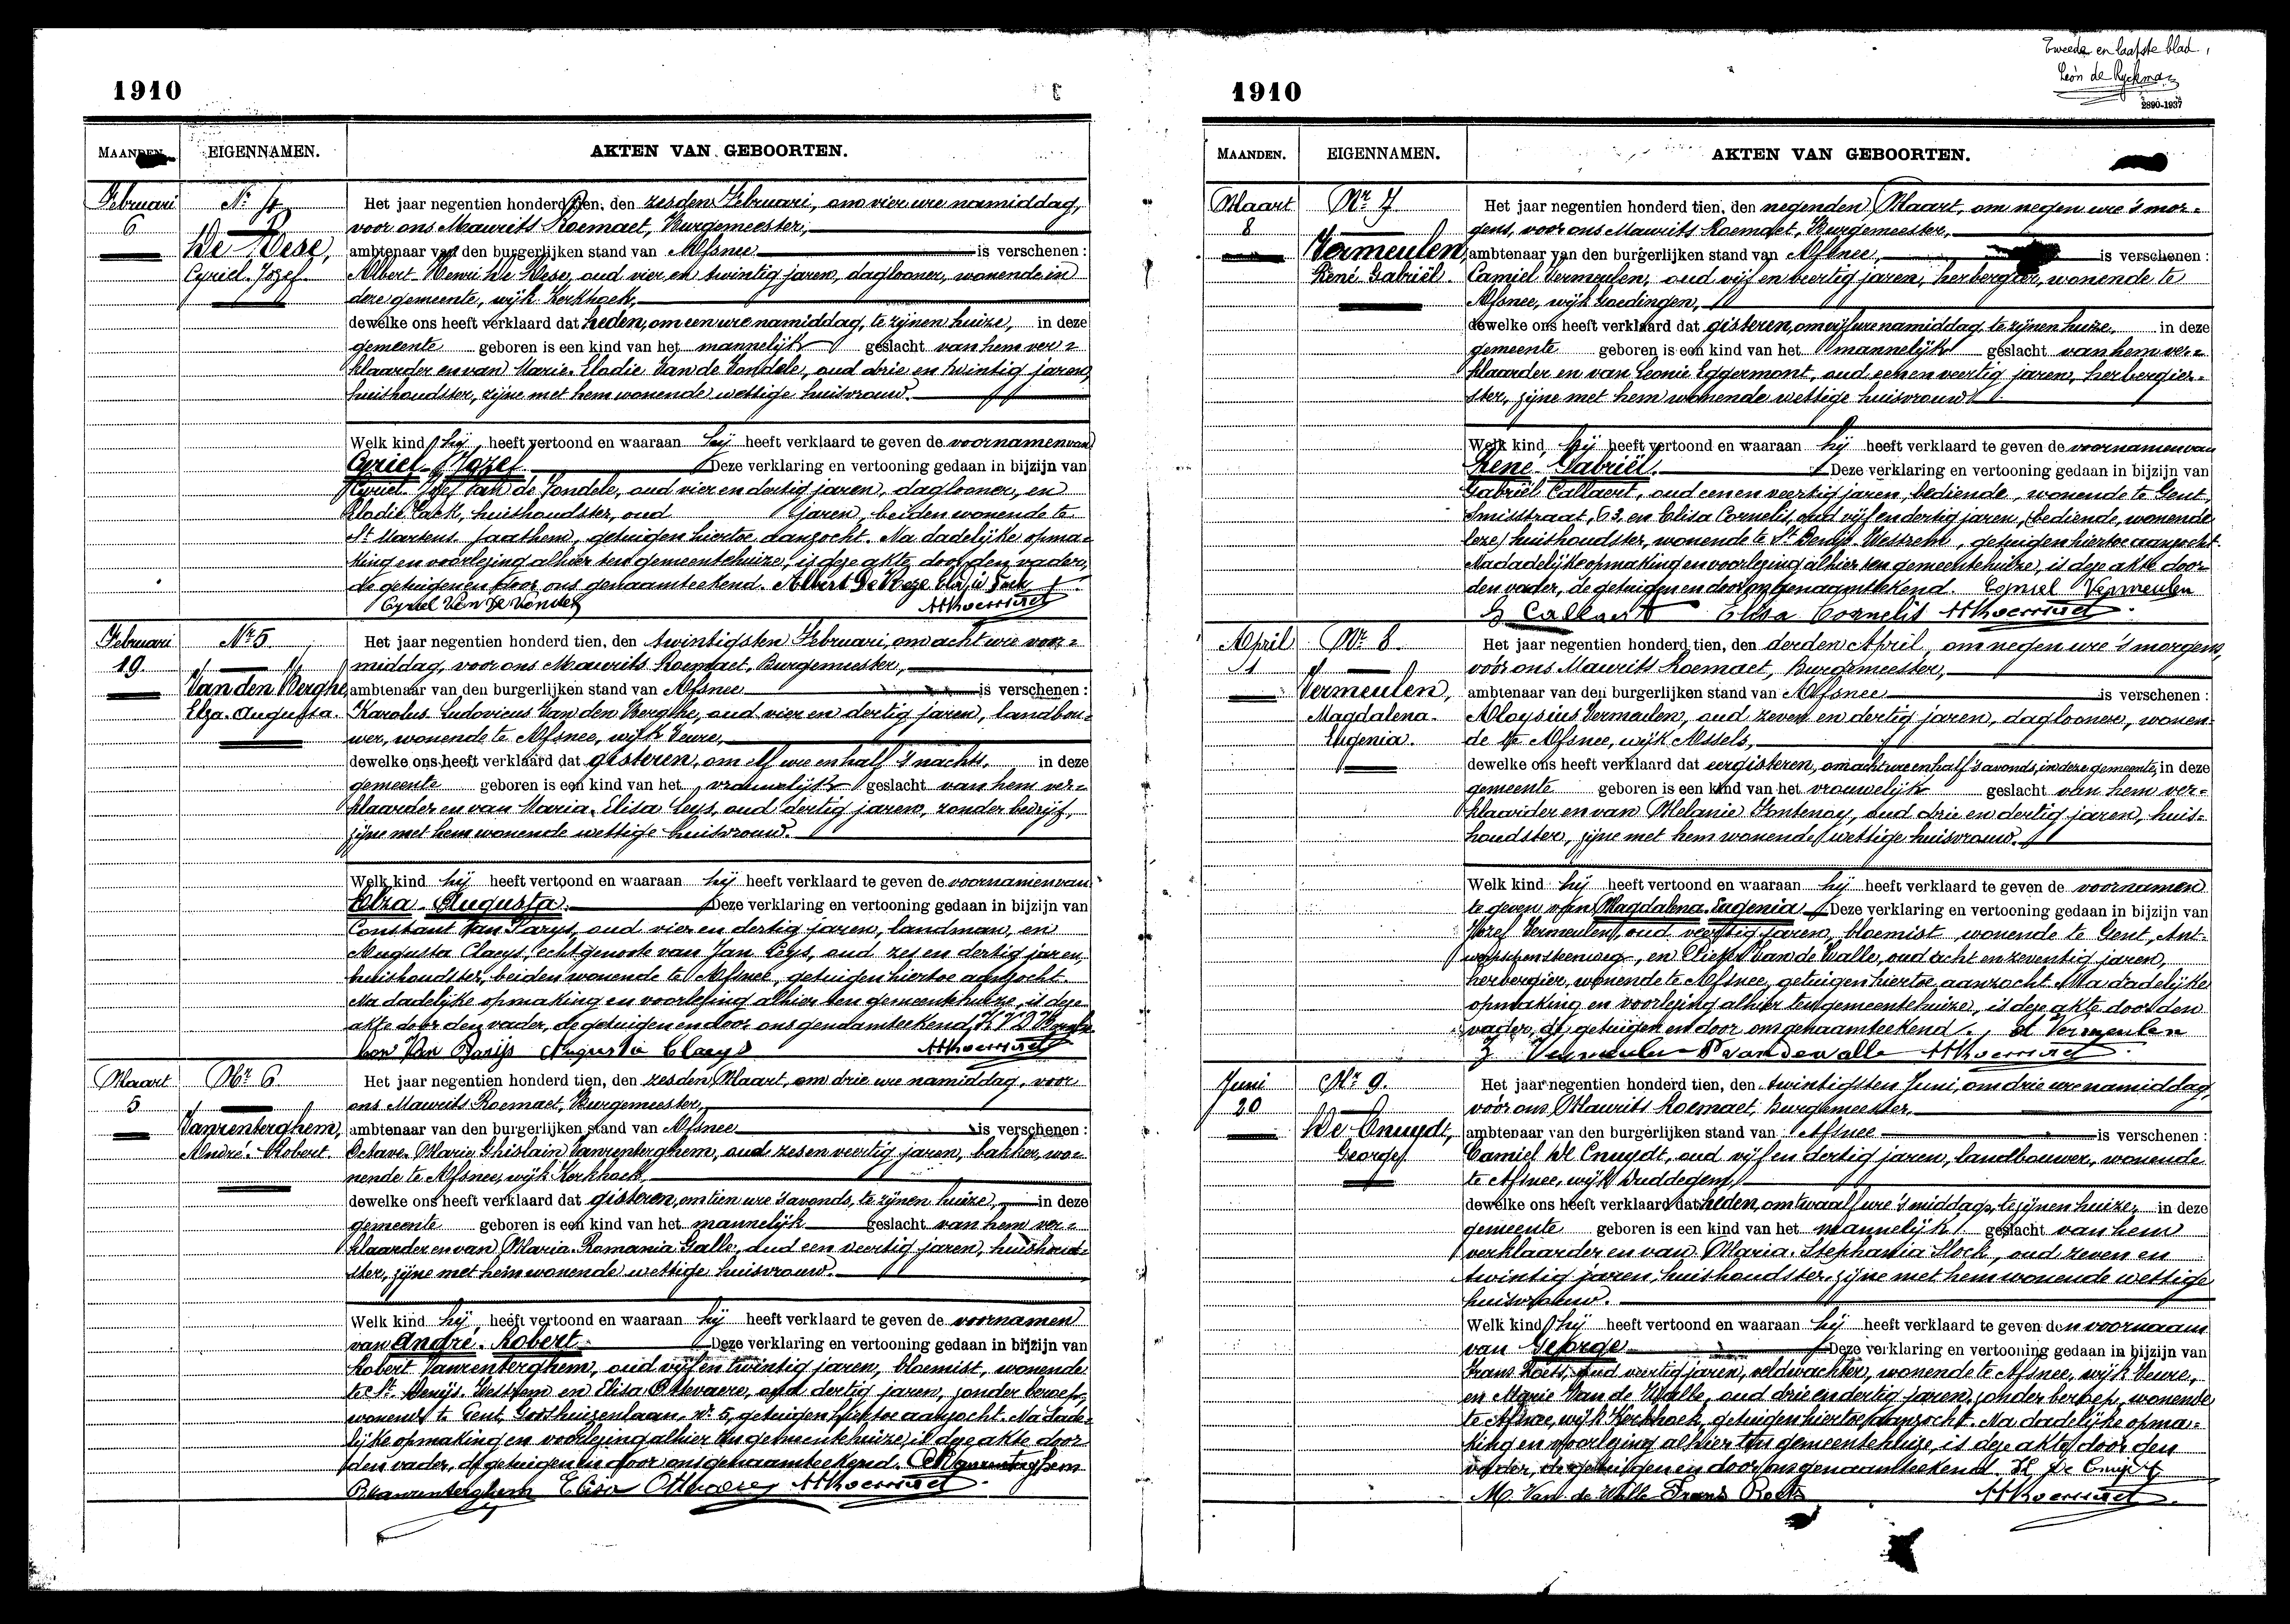 1910
MAANDEN.
EIGENNAMEN.
AKTEN VAN GEBOORTEN.
Februari
6
Nr 4
De Vese,
Cyriel-Jozef
Het jaar negentien honderd tien, den zesden Februari, om vier ure namiddag,
voor ons Maurits Roemaet, Burgemeester,
ambtenaar van den burgerlijken stand van Afsnee is verschenen :
Albert Henri De Vese, oud vier en twintig jaren, daglooner, wonende in
deze gemeente, wijk Kerkhoek,
dewelke ons heeft verklaard dat heden, om een ure namiddag, te zijnen huize, in deze
gemeente geboren is een kind van het mannelijk geslacht van hem ver=
klaarder en van Marie-Elodie Van de Vondele, oud drie en twintig jaren,
huishoudster, zijne met hem wonende wettige huisvrouw.
Welk kind hij heeft vertoond en waaraan hij heeft verklaard te geven de voornamen van
Cyriel-Jozef Deze verklaring en vertooning gedaan in bijzijn van
Cyriel-Jozef Van de Vondele, oud vier en dertig jaren, daglooner, en
Elodie huishoudster, oud jaren, beiden wonende te
St Martens-Laathem, getuigen hiertoe aanzocht. Na dadelijke opma-
king en voorlezing alhier ten gemeentehuize, is deze akte door den vader,
de getuigen en door ons genaamteekend. Albert De Veze Elodie
Cyriel Van De Vondele MRoemaet
Februari
19.
Nr 5
Van den Berghe,
Elza-Augusta.
Het jaar negentien honderd tien, den twintigsten Februari, om acht ure voor=
middag, voor ons Maurits Roemaet, Burgemeester,
ambtenaar van den burgerlijken stand van Afsnee is verschenen :
Karolus Ludovicus Van den Berghe, oud vier en dertig jaren, landbou-
wer, wonende te Afsnee, wijk Veure,
dewelke ons heeft verklaard dat gisteren, om elf ure en half 's nachts, in deze
gemeente geboren is een kind van het vrouwelijk geslacht van hem ver=
klaarder en van Maria-Elisa Leys, oud dertig jaren, zonder bedrijf,
zijne met hem wonende wettige huisvrouw.
Welk kind hij heeft vertoond en waaraan hij heeft verklaard te geven de voornamen van
Elza-Augusta. Deze verklaring en vertooning gedaan in bijzijn van
Constant Van Parys, oud vier en dertig jaren, landman, en
Augusta Claeys, echtgenoote van Jan Leys, oud zes en dertig jaren,
huishoudster, beiden wonende te Afsnee, getuigen hiertoe aanzocht.
Na dadelijke opmaking en voorlezing alhier ten gemeentehuize, is deze
akte door den vader, de getuigen en door ons genaamteekend.
Con Van Parijs Augusta Claeys MRoemaet
Maart
5
Nr 6
Vanrenterghem,
André-Robert.
Het jaar negentien honderd tien, den zesden Maart, om drie ure namiddag, voor
ons Maurits Roemaet, Burgemeester,
ambtenaar van den burgerlijken stand van Afsnee is verschenen :
Octave-Marie-Ghislain Vanrenterghem, oud zes en veertig jaren, bakker, wo-
nende te Afsnee, wijk Kerkhoek,
dewelke ons heeft verklaard dat gisteren, om tien ure 's avonds, te zijnen huize, in deze
gemeente geboren is een kind van het mannelijk geslacht van hem ver=
klaarder en van Maria-Romania Galle, oud een veertig jaren, huishoud-
ster, zijne met hem wonende wettige huisvrouw.
Welk kind hij heeft vertoond en waaraan hij heeft verklaard te geven de voornamen
van André-Robert. Deze verklaring en vertooning gedaan in bijzijn van
Robert Vanrenterghem, oud vijf en twintig jaren, bloemist, wonende
te St Denijs-Westrem en Elisa Ottevaere, oud dertig jaren, zonder beroep,
wonende te Gent, Groothuizenlaan, Nr 5, getuigen hiertoe aanzocht. Na dade-
lijke opmaking en voorlezing alhier ten gemeentehuize, is deze akte door
den vader, de getuigen en door ons genaamteekend. Vanrenterghem
RVanrenterghem Elisa Ottevaere MRoemaet
Tweede en laatste blad,
Leon de Ryckman
2890-1937
1910
MAANDEN.
EIGENNAMEN.
AKTEN VAN GEBOORTEN.
Maart
8
Nr 7
Vermeulen,
René-Gabriël.
Het jaar negentien honderd tien, den negenden Maart, om negen ure 's mor=
gens, voor ons Maurits Roemaet, Burgemeester,
ambtenaar van den burgerlijken stand van Afsnee, is verschenen :
Camiel Vermeulen, oud vijf en veertig jaren, herbergier, wonende te
Afsnee, wijk Goedingen,
dewelke ons heeft verklaard dat gisteren, om vijf ure namiddag, te zijnen huize, in deze
gemeente geboren is een kind van het mannelijk geslacht van hem ver=
klaarder en van Leonie Eggermont, oud een en veertig jaren, herbergier=
ster, zijne met hem wonende wettige huisvrouw
Welk kind hij heeft vertoond en waaraan hij heeft verklaard te geven de voornamen van
René-Gabriël. Deze verklaring en vertooning gedaan in bijzijn van
Gabriël Callaert, oud een en veertig jaren, bediende, wonende te Gent,
Smisstraat, 63, en Elisa Cornelis, oud vijf en dertig jaren, (bediende, wonende
leze) huishoudster, wonende te St Denijs-Westrem, getuigen hiertoe aanzocht.
Na dadelijke opmaking en voorlezing alhier ten gemeentehuize, is deze akte door
den vader, de getuigen en door ons genaamteekend. Camiel Vermeulen
G Callaert Elisa Cornelis MRoemaet
April
1
Nr 8.
Vermeulen,
Magdalena-
Eugenia.
Het jaar negentien honderd tien, den derden April, om negen ure 's morgens,
voor ons Maurits Roemaet, Burgemeester,
ambtenaar van den burgerlijken stand van Afsnee is verschenen :
Aloysius Vermeulen, oud zeven en dertig jaren, daglooner, wonen-
de te Afsnee, wijk Assels,
dewelke ons heeft verklaard dat eergisteren, om acht ure en half 's avonds, in deze gemeente, in deze
gemeente geboren is een kind van het vrouwelijk geslacht van hem ver=
klaarder en van Melanie Fontenoy, oud drie en dertig jaren, huis=
houdster, zijne met hem wonende wettige huisvrouw.
Welk kind hij heeft vertoond en waaraan hij heeft verklaard te geven de voornamen
te geven van Magdalena-Eugenia Deze verklaring en vertooning gedaan in bijzijn van
Jozef Vermeulen, oud veertig jaren, bloemist wonende te Gent, Ant-
werpschensteenweg, en Pieter Van de Walle, oud acht en zeventig jaren,
herbergier, wonende te Afsnee, getuigen hiertoe aanzocht. Na dadelijke
opmaking en voorlezing alhier ten gemeentehuize, is deze akte door den
vader, de getuigen en door ons genaamteekend. Vermeulen
J Vermeulen P vandewalle MRoemaet
Juni
20
Nr 9.
De Cnuydt,
George
Het jaar negentien honderd tien, den twintigsten Juni, om drie ure namiddag,
voor ons Maurits Roemaet, Burgemeester,
ambtenaar van den burgerlijken stand van Afsnee is verschenen :
Camiel De Cnuydt, oud vijf en dertig jaren, landbouwer, wonende
te Afsnee, wijk Duddegem,
dewelke ons heeft verklaard dat heden, om twaalf ure 's middags, te zijnen huize, in deze
gemeente geboren is een kind van het mannelijk geslacht van hem
verklaarder en van Maria-Stephania Slock, oud zeven en
twintig jaren, huishoudster, zijne met hem wonende wettige
huisvrouw.
Welk kind hij heeft vertoond en waaraan hij heeft verklaard te geven den voornaam
van George Deze verklaring en vertooning gedaan in bijzijn van
Frans Roets, oud veertig jaren, veldwachter, wonende te Afsnee, wijk Veure,
en Marie Van de Walle, oud drie en dertig jaren, zonder beroep, wonende
te Afsnee, wijk Kerkhoek, getuigen hiertoe aanzocht. Na dadelijke opma=
king en voorlezing alhier ten gemeentehuize, is deze akte door den
vader, de getuigen en door ons genaamteekend De Cnuydt
M. Van de Walle Frans Roets MRoemaet